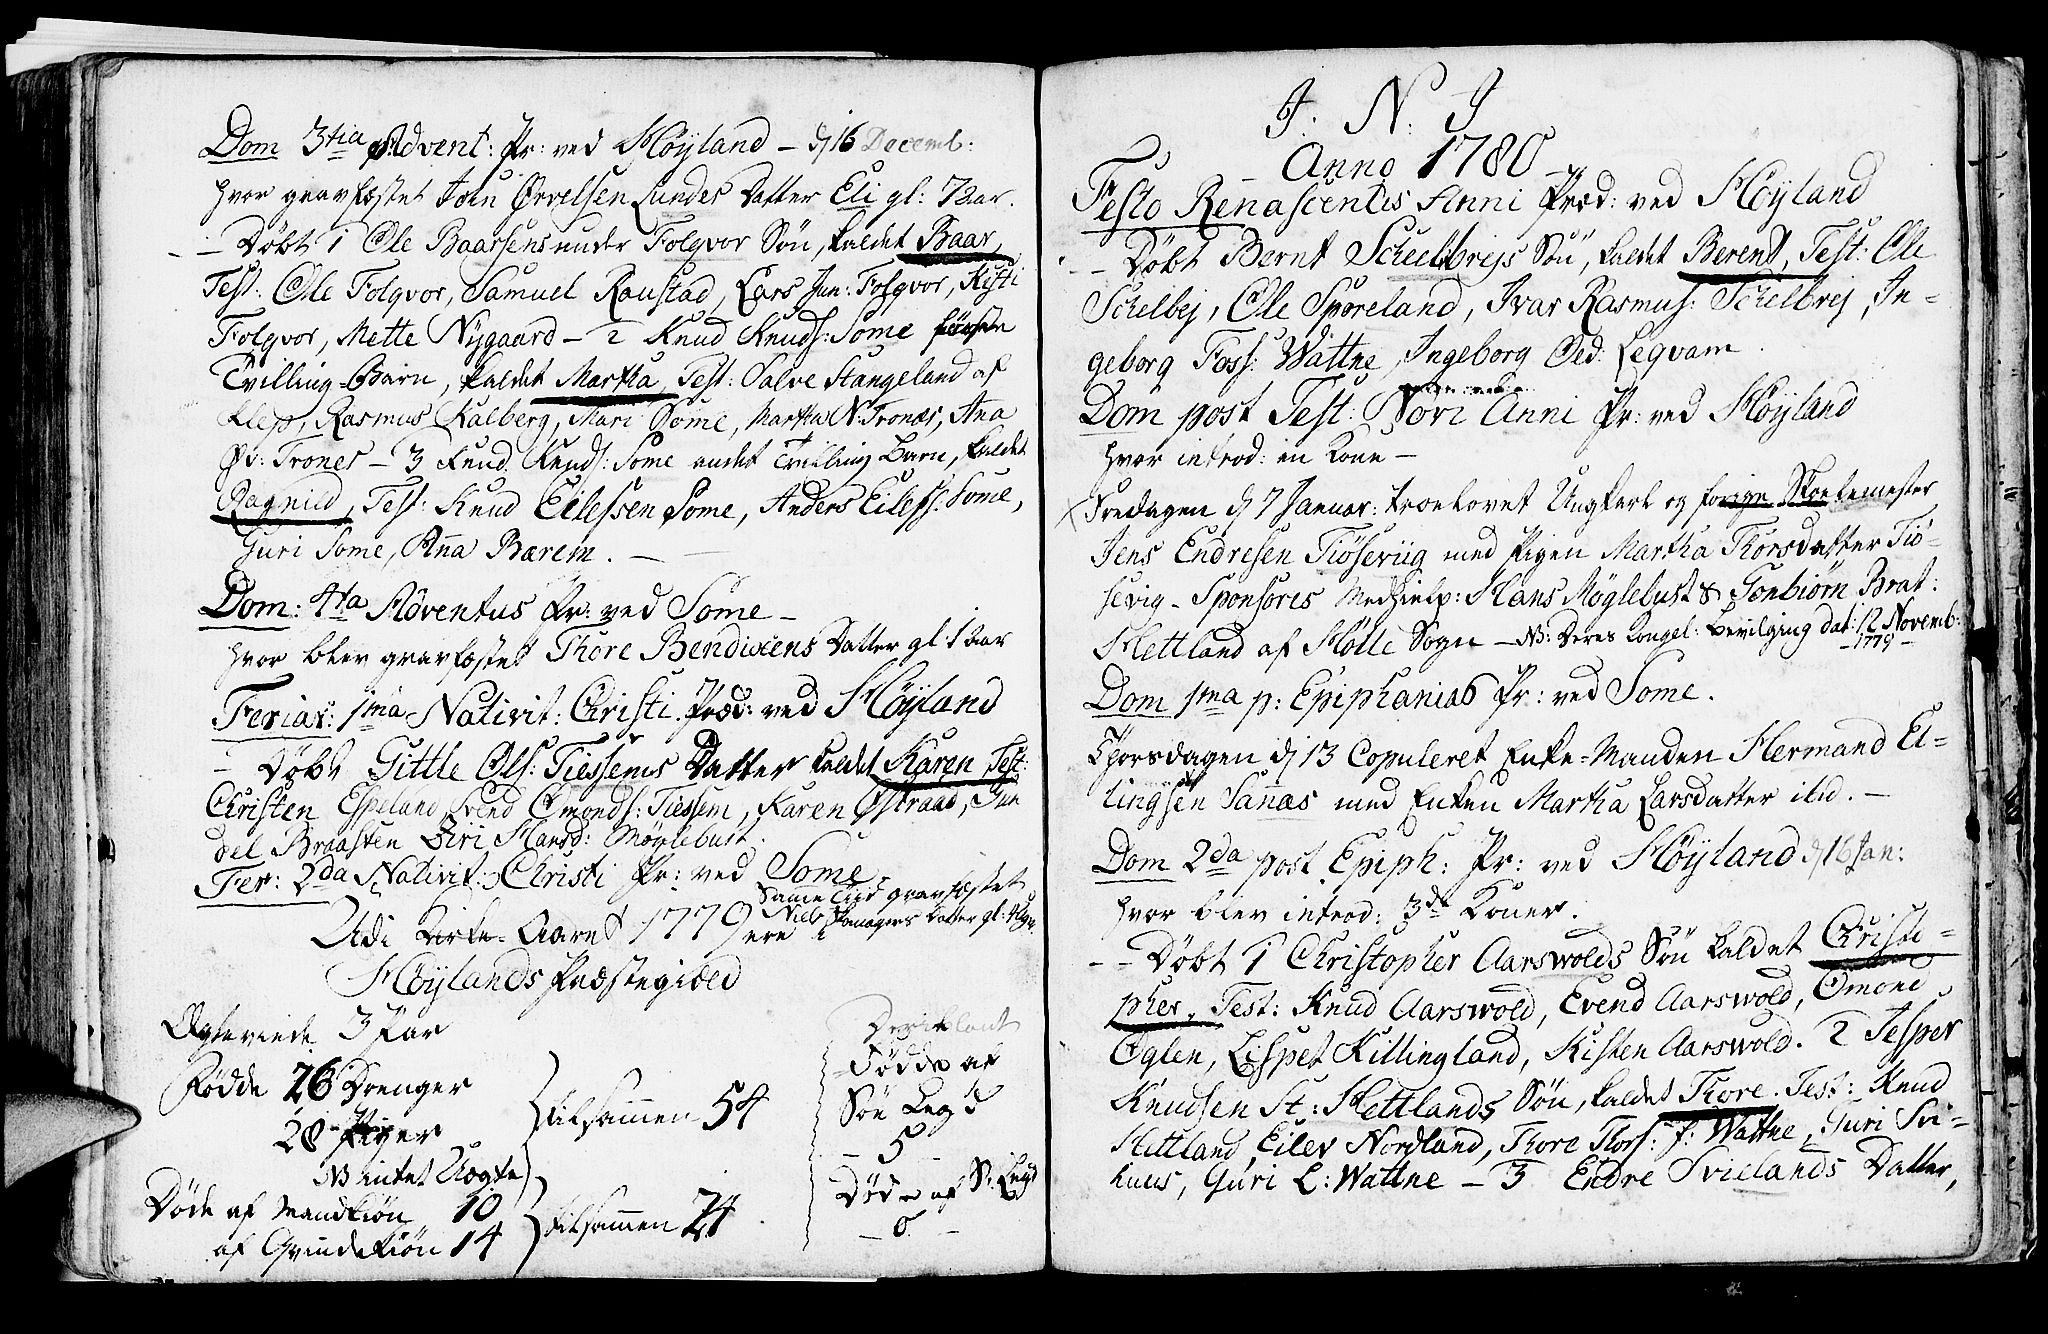 Dom 3tia Advent: Pr: ved Höyland – d 16 Decemb:
hvor gravfæstet John Örvelsen Lundes Datter Eli gl: 72 aar.
– Döbt 1 Ole Baarsens under Folqvor Sön, kaldet Baar,
Test: Ole Folqvor, Samuel Raustad, Lars Jun: Folqvor, Kisti
Folqvor, Mette Nygaard – 2 Knud Knuds: Some förste
Tvilling-Barn, kaldet Martha, Test: Salve Stangeland af
Klep, Rasmus Kalberg, Mari Some, Martha N: Tronæs, Ana
Öv: Trones – 3 Knud Knuds: Some andet Tvilling Barn, kaldet
Ragnild, Test: Knud Eilefsen Some, Anders Eilefs: Some,
Guri Some, Ana Barem. –
Dom: 4ta Adventus Pr: ved Some –
hvor blev gravfæstet Thore Bendixens Datter gl 1 aar
Feriar: 1ma Nativit: Christi Præd: ved Höyland
– Döbt Gittle Ols: Tiessems Datter kaldet Karen Test:
Christen Espeland, Svend Omonds: Tiessem, Karen Östraad, Jun
del Braasten Siri Hansd: Möglebust.
Fer: 2da Nativit: Christi Pr: ved Some
Same Tiid gravfæstet
Niels Datter gl:
Udi Kirke-Aaret 1779 ere i
Höylands Præstegield
Ægteviede 3 Par
Födde 26 Drenger
28 Piger
NB intet Uægte
tilsamen 54
Döde af Mandkiön 10
af Qvindekiön 14
tilsamen 24
Födde af
Söe Legd
– 5 –
Döde af S: Legd
– 0 –
J. N. J
Anno 1780
Festo Renascentis Anni Præd: ved Höyland
– Döbt Bernt Scheelbreis Sön, kaldet Berent, Test: Ole
Schelbrej, Ole Sporeland, Ivar Rasmus: Schelbrej, In-
geborg Foss: Wattne, Ingeborg Ped: Leqvam.
Dom post Fest: Novi Anni Pr: ved Höyland
hvor introd: en Kone –
Fredagen d 7 Januar: troelovet Ungkarl og forige Skolemester
Jens Endresen Tiösevig med Pigen Martha Thorsdatter Tiö-
sevig – Sponsores Medhielp: Hans Möglebust & Tonbiörn Brat:
Hettland af Holle Sogn – NB: Deres Kongel: Bevilging dat: 12 Novemb:
– 1779 –
Dom 1ma p: Epiphanias Pr: ved Some.
Thorsdagen d 13 Copuleret Enke-Manden Hermand El-
lingsen Sanæs med Enken Martha Larsdatter ibid. –
Dom 2da post Epiph: Pr: ved Höyland d 16 Jan:
hvor blev introd: 3de Koner.
– Döbt 1 Christopher Aarswolds Sön kaldet Christo-
pher, Test: Knud Aarswold, Evend Aarswold, Omond
Oglen, Lispet Killingland, Kisten Aarswold. 2 Jesper
Knudsen St: Hettlands Sön, kaldet Thore. Test: Knud
Hettland, Eilev Nordland, Thore Thors: p: Wattne, Guri Svi-
, Guri L: Wattne – 3 Endre Svielands Datter,